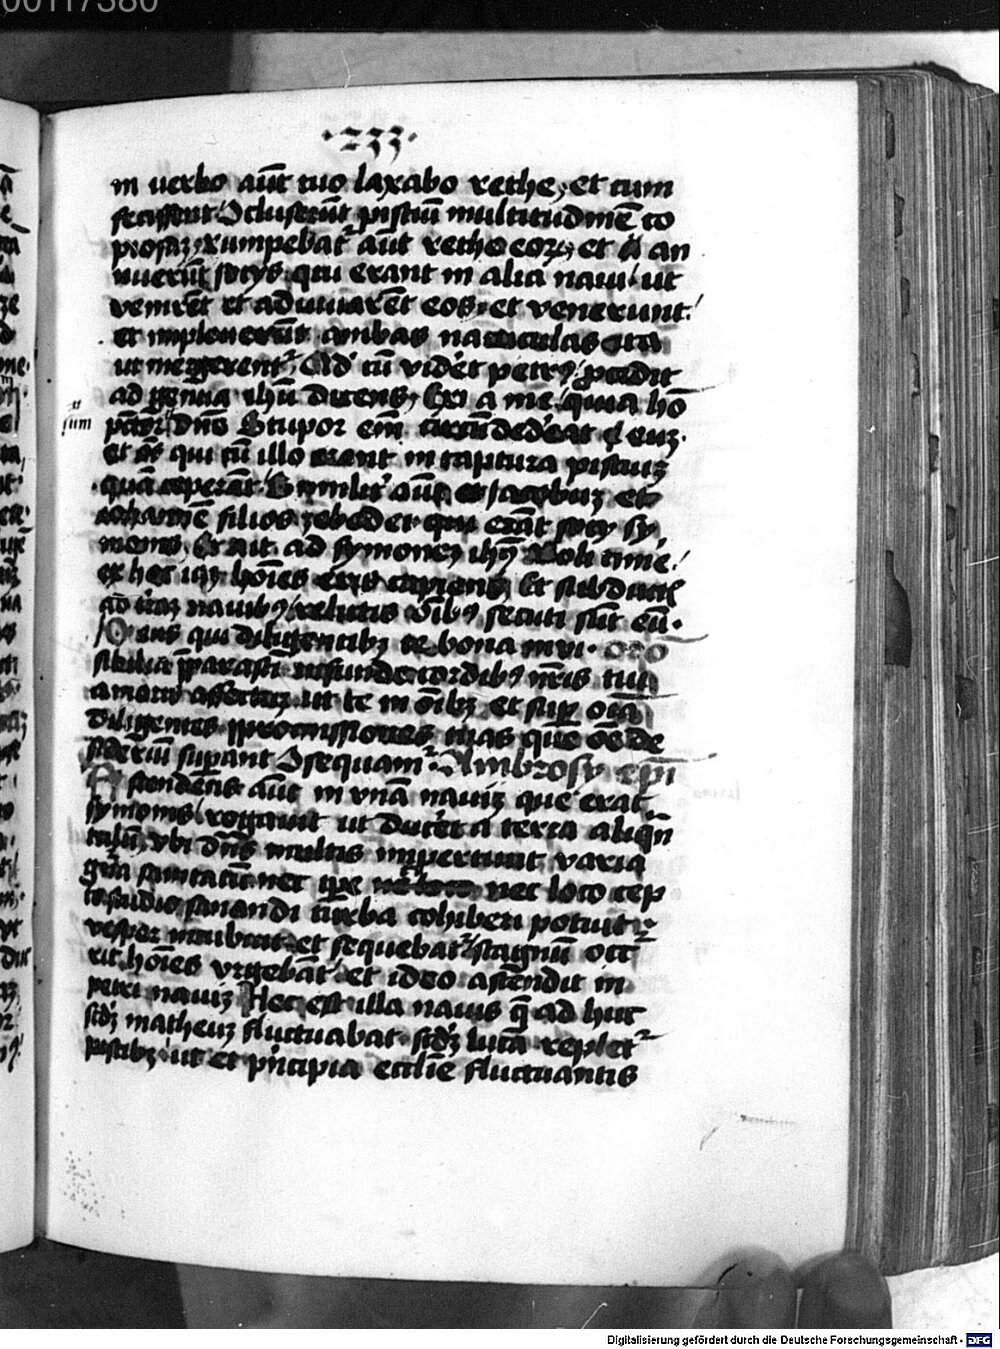 00117380
·233·
in verbo aūt tuo laxabo rethe, et cum
fecissent ꝯcluserūt pisciū multitudinē co
piosaꝫ, rumpebat᷑ aūt rethe eoꝝ, et an
nuerūt socijs qui erant in alia naui ut
venirēt et adiuuarēt eos, et venerunt
et impleuerūt ambas nauiculas ita
ut mergerent᷑, Qd' cū vidēt petrꝰ, ꝓcidit
ad genua ihū dicens, Exi a me quia hō
pctōr sum dnē Stupor em̄ circūdederat eūꝫ
et oēs qui cū illo erant in captura pisciuꝫ
quā ceperāt, Similit' aūt et Jacobuꝫ et
iohannē filios zebedei qui erāt socij sy
monis, Et ait ad symoneꝫ ihꝰ Noli timē'
ex hoc iaꝫ hoīes eris capiens, Et subductꝭ
ad t'raꝫ nauibꝰ, relictis oībꝰ, secuti sūt eū·
Deus qui diligentibꝫ te bona inui· oro
sibilia p̄parasti infunde cordibꝰ nr̄is tui
amoris affectuꝫ ut te in oībꝫ et suꝑ oīa
diligentes ꝓmissiones tuas que oē de
sideriū suꝑant ꝯsequam᷑· Ambrosij ep̄i
Ascendens aūt in vnā nauiꝫ que erat
symonis, rogauit ut ducēt a terra aliqn̄
tulū, vbi dn̄s multis impertiuit varia
gn̄a sanitatū nec tꝑe nec loco cep
to studio sanandi turba cohiberi potuit,
vesper incubuit et sequebat᷑, stagnū occ᷑
rit hoīes vrgebāt et ideo ascendit in
petri nauiꝫ Hec est illa nauis q̄ ad huc
scd'ꝫ matheuꝫ fluctuabat scd'ꝫ lucā replet᷑
piscibꝫ, ut et p'ncipia ecclīe fluctuantis
Digitalisierung gefördert durch die Deutsche Forschungsgemeinschaft - DFG